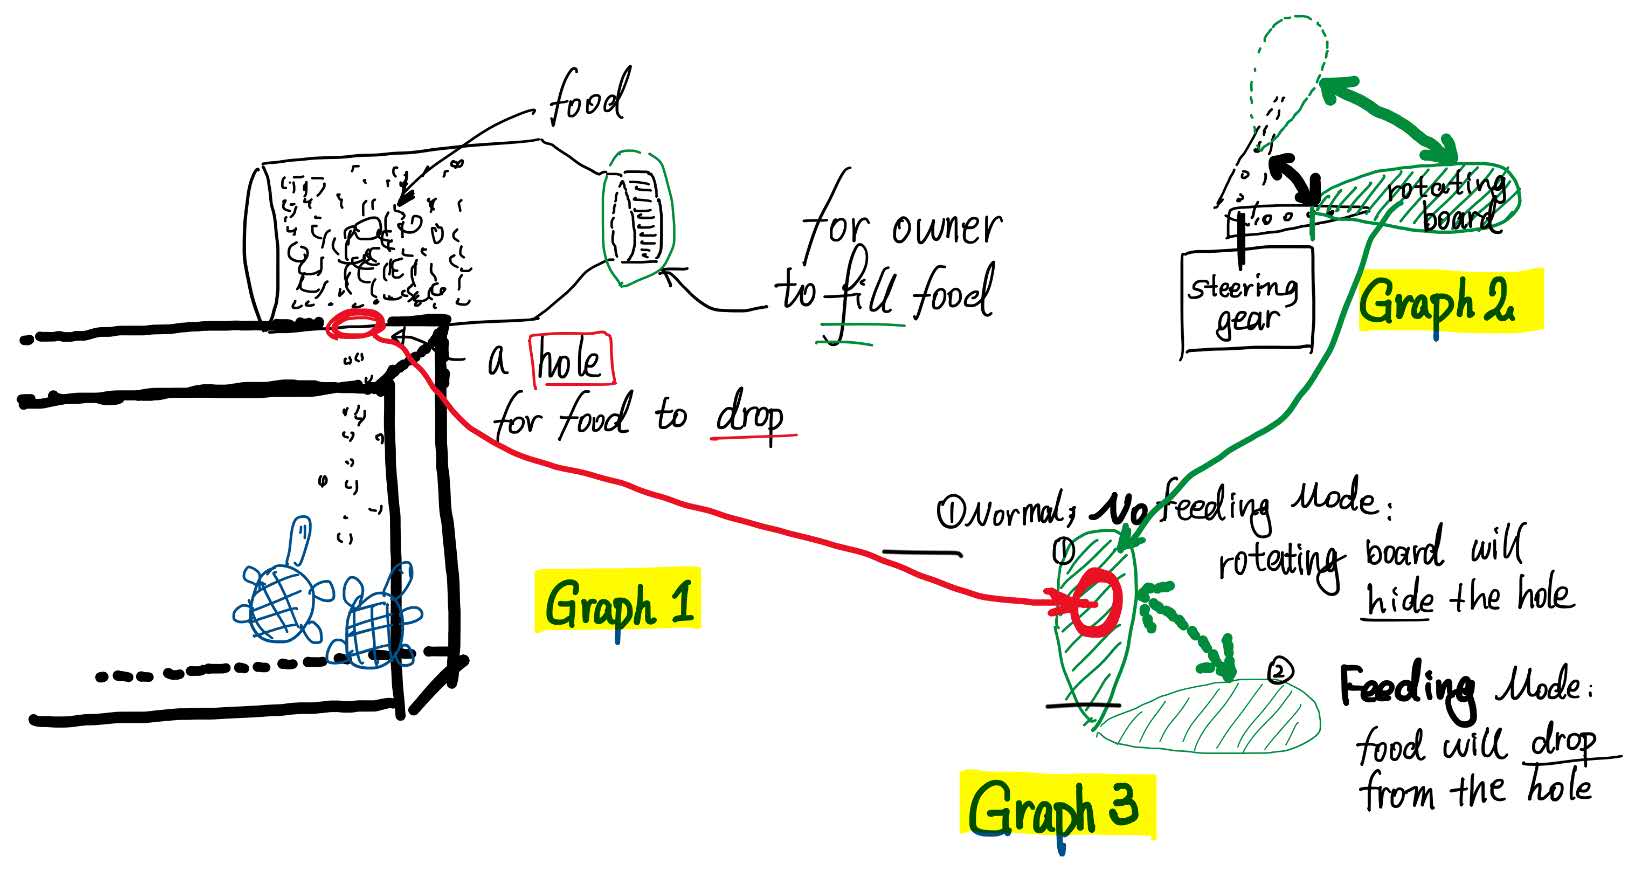 food
for owner
to fill food
a hole
for food to drop
Graph 1
rotating
board
steering
gear
Graph 2
① Normal, No feeding Mode:
rotating board will
hide the hole
①
②
Feeding Mode:
food will drop
from the hole
Graph 3